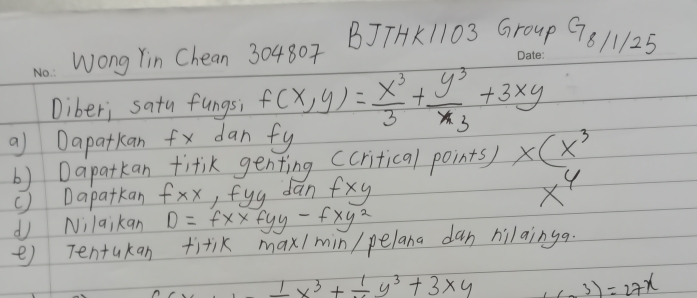 BJTHK1103 Group G 8/1/25
No.: Wong Yin Chean 304807 Date:
Diberi satu fungsi f(x,y) = x³/3 + y³/3 + 3xy
a) Dapatkan fx dan fy
b) Dapatkan titik genting (critical points) x(x³
c) Dapatkan fxx, fyy dan fxy x⁴
d) Nilaikan D = fxx fyy - fxy²
e) Tentukan titik max/min/pelana dan nilainya.
1/3 x³ + y³ + 3xy ³) = 27x